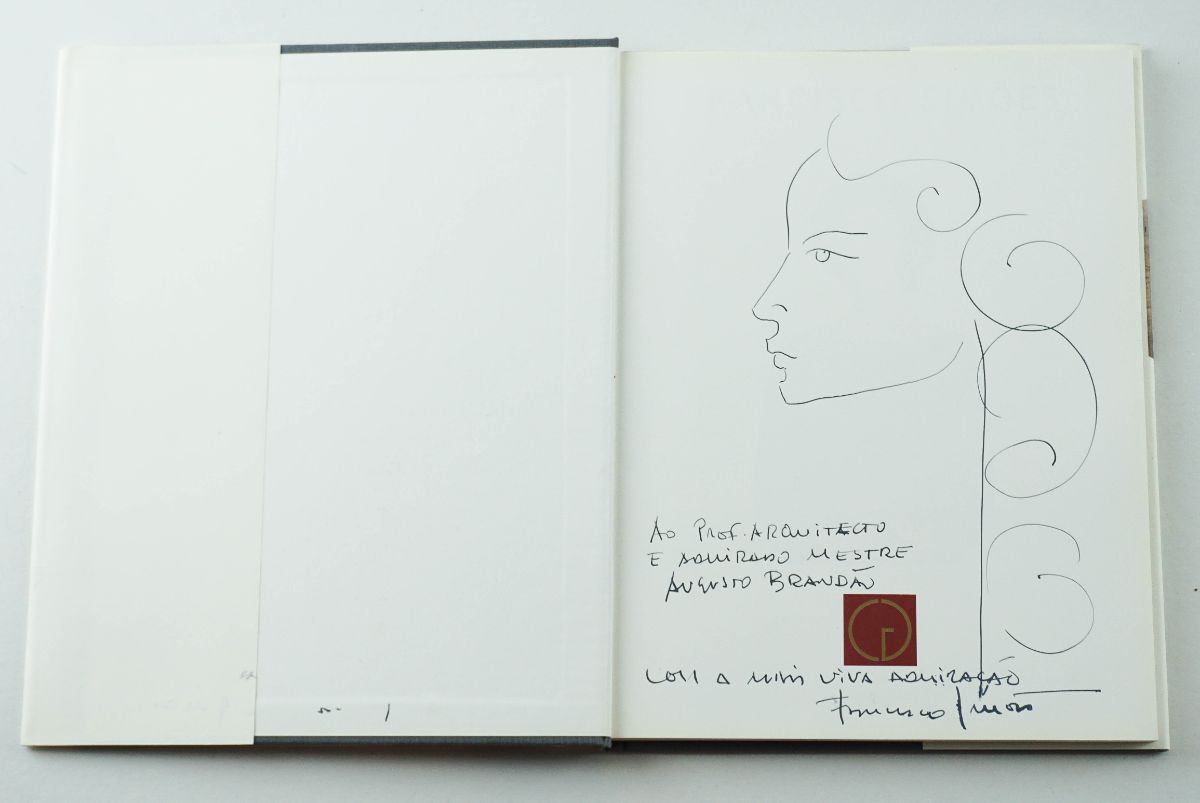 AO PROF. ARQUITECTO
E ADMIRADO MESTRE
AUGUSTO BRANDÃO
COM A MAIS VIVA ADMIRAÇÃO
Francisco Simões